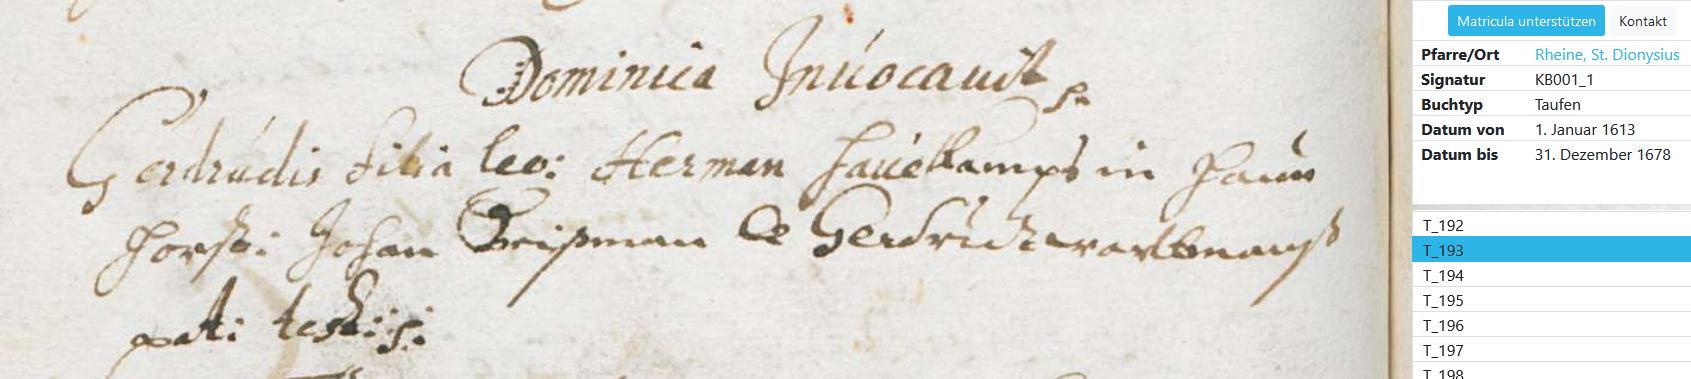 Dominica Invocavit
Gerdrudis filia leg: Herman Hauekamps in Haus
horst: Johan & Gerdrudt
pati: testis:
Matricula unterstützen
Kontakt
Pfarre/Ort Rheine, St. Dionysius
Signatur KB001_1
Buchtyp Taufen
Datum von 1. Januar 1613
Datum bis 31. Dezember 1678
T_192
T_193
T_194
T_195
T_196
T_197
T_198